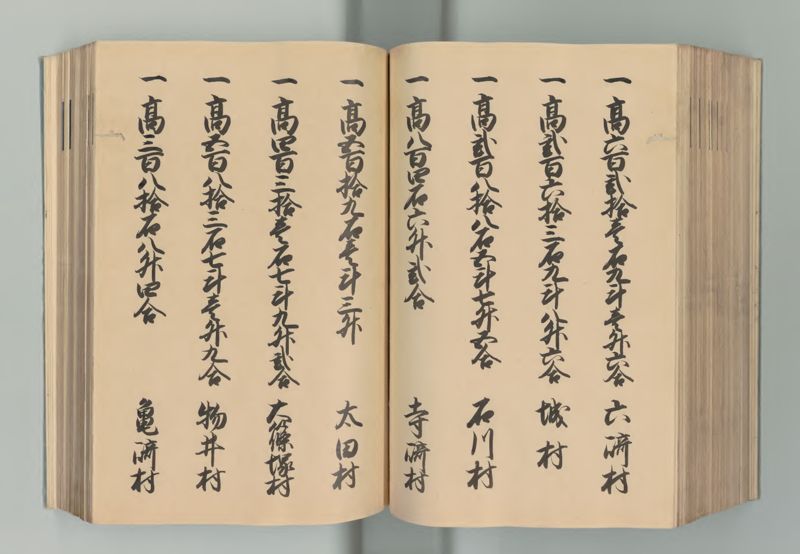 一 高六百弐拾壱石九斗壱升六合 六崎村
一 高弐百六拾三石九斗八升六合 城村
一 高弐百八拾八石五斗七升五合 石川村
一 高八百四石六升弐合 寺崎村
一 高五百拾九石壱斗三升 太田村
一 高四百三拾壱石七斗九升弐合 大篠塚村
一 高五百八拾三石七斗壱升九合 物井村
一 高三百八拾石八升四合 亀崎村